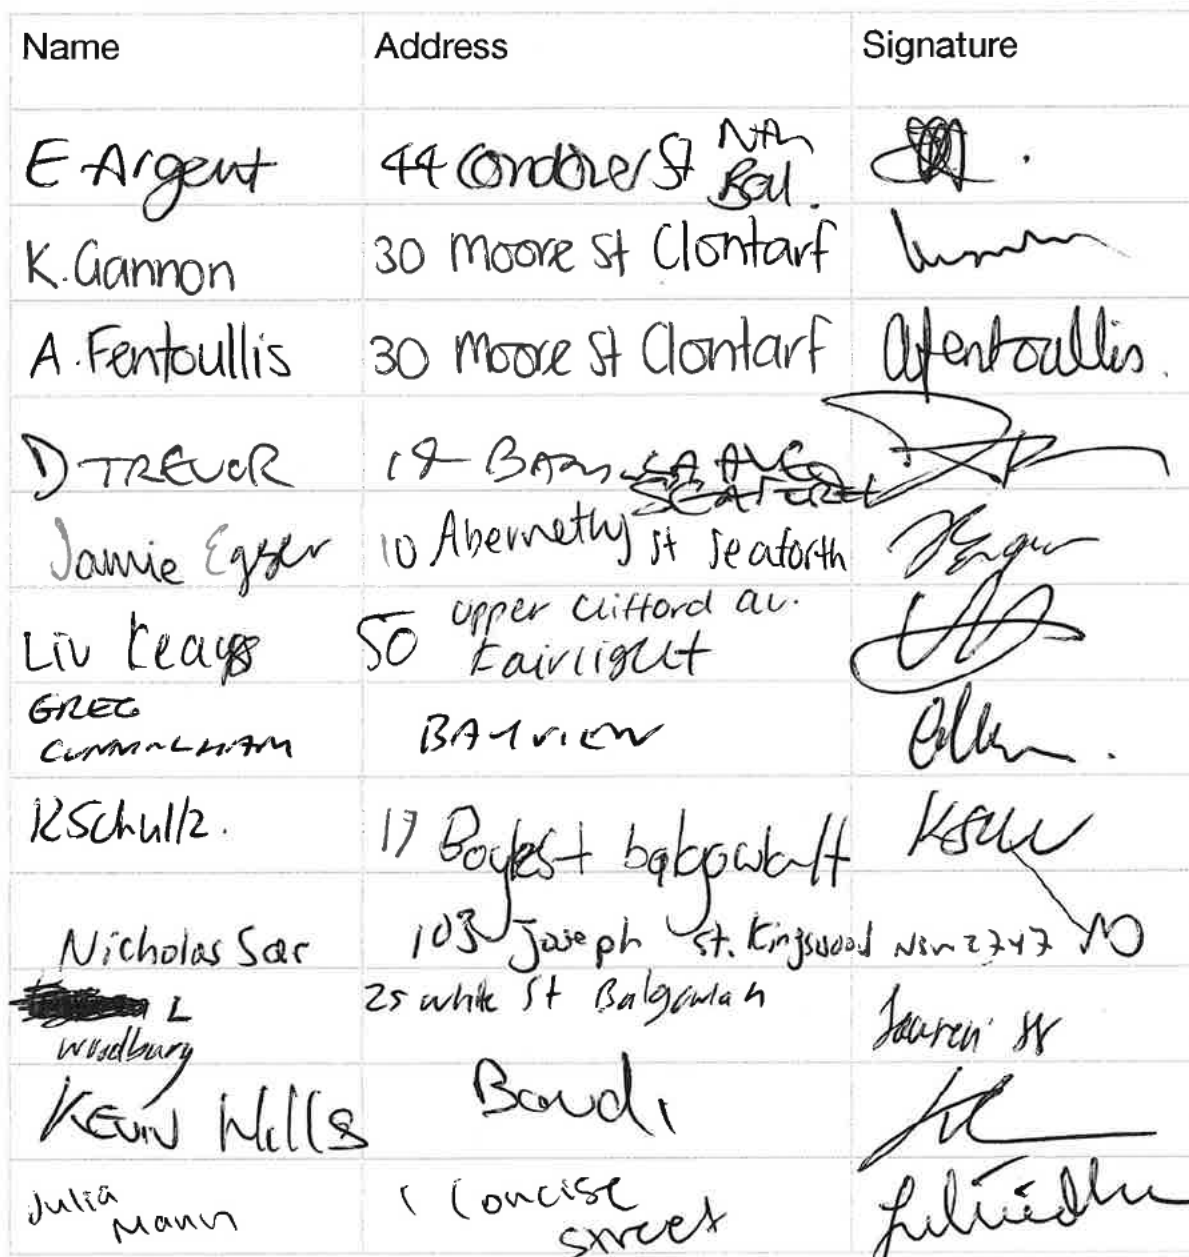 Name Address Signature
E Argent 44 Condover St Nth Bal.
K. Gannon 30 Moore St Clontarf
A. Fentoullis 30 Moore St Clontarf afentoullis.
D TREVOR AVE
Jamie Egger 10 Abernethy st Seaforth
Liv Keays 50 upper clifford av.
Fairlight
GREG
CUNNINGHAM BAYVIEW
K Schultz. 17 Boyle St balgowlah
Nicholas Sar 103 Joseph St. Kingswood NSW 2747
L 25 white St Balgowlah
woodbury Lauren W
KEVIN Wills Bondi
Julia
Mann 1 Concise
street